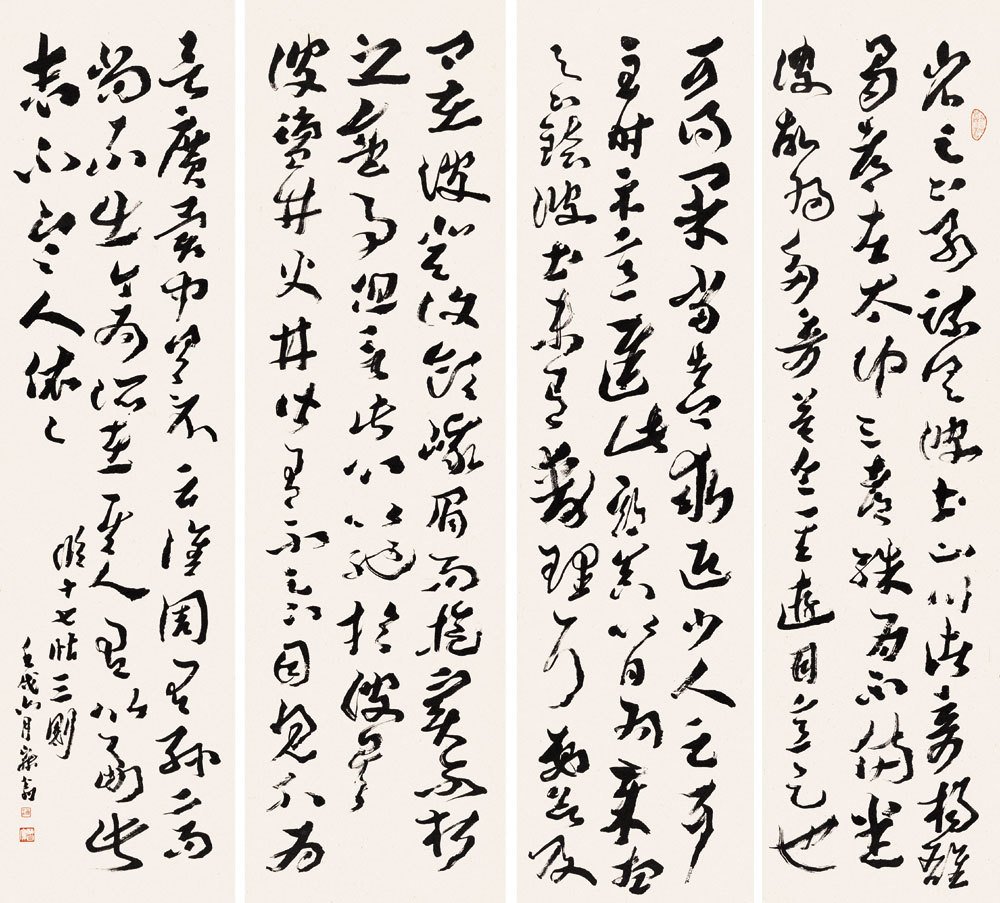 省足下别疏具彼土山川諸奇楊雄
蜀都左太冲三都殊為不備悉
彼故為多奇益令其遊目意足也
可得果當告卿求迎少人足耳
至時示意遲此期真以日為歲想
足下鎮彼土未有動理耳要欲及
卿在彼登汶領峨眉而旋實不朽
之盛事但言此心以馳於彼矣
彼鹽井火井皆有不足下目見不為
廣異聞具示云譙周有孫高
尚不出今為所在其人有以副此
志不令人依依
臨十七帖三則
壬戌六月